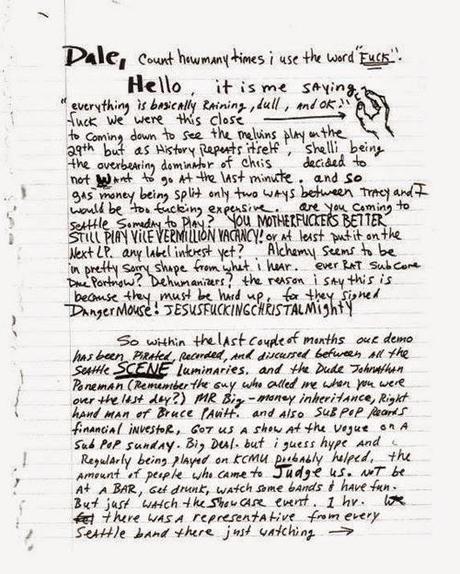 Dale, Count how many times i use the word "FUCK".
Hello, it is me saying
"everything is basically Raining, dull, and OK!"
fuck we were this close
to coming down to see the melvins play on the
29th but as History Repeats itself, Shelli being
the overbearing dominator of Chris decided to
not Want to go at the last minute. and so
gas money being split only two ways between TRACY and I
would be too fucking expensive. are you coming to
seattle Someday to Play? YOU MOTHERFUCKERS BETTER
STILL PLAY VILE VERMILLION VACANCY! or At least put it on the
Next LP. any label interest yet? Alchemy Seems to be
in pretty sorry shape from what i hear. ever RAT Subcore
Dehumanizers? the reason i say this is
because they must be hard up, for they signed
DangerMouse! JESUSFUCKINGCHRISTALMIGHTY
So within the last couple of months our demo
has been PiRated, Recorded, and discussed between all the
Seattle SCENE Luminaries. and the Dude Johnathan
Poneman (Remember the guy who called me when you were
over the last day?) MR Big-money inheritance, Right
hand man of Bruce PAvitt. and also SUB POP Records
financial investor, GOT us a show at the Vogue on A
Sub POP sunday. Big Deal. but i guess hype and
Regularly being played on KCMU probably helped, the
amount of people who came to Judge us. NOT be
AT A BAR, Get drunk, watch some bands & have fun.
But just watch the Showcase event. 1 hr.
there was a representative from every
Seattle band there just watching →